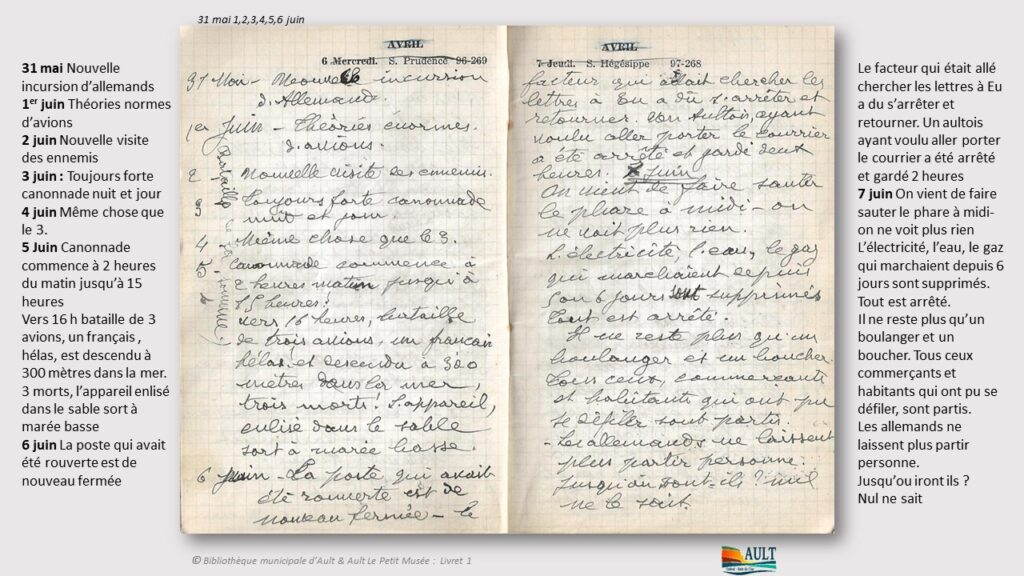 31 mai 1,2,3,4,5,6 juin
31 mai Nouvelle
incursion d’allemands
1er juin Théories normes
d’avions
2 juin Nouvelle visite
des ennemis
3 juin : Toujours forte
canonnade nuit et jour
4 juin Même chose que
le 3.
5 Juin Canonnade
commence à 2 heures
du matin jusqu’à 15
heures
Vers 16 h bataille de 3
avions, un français ,
hélas, est descendu à
300 mètres dans la mer.
3 morts, l’appareil enlisé
dans le sable sort à
marée basse
6 juin La poste qui avait
été rouverte est de
nouveau fermée
AVRIL
6 Mercredi. S. Prudence 96-269
31 Mai - Nouvelle incursion
d'Allemands.
1er Juin - Théories énormes
d'avions.
2 - Nouvelle visite des ennemis.
3 Toujours forte canonnade
nuit et jour.
4 Même chose que le 3.
5 - Canonnade commence à
2 heures matin jusqu'à
15 heures!
vers 16 heures, bataille
de trois avions, un français
hélas! est descendu à 300
mètres dans la mer,
trois morts! L'appareil,
enlisé dans le sable
sort à marée basse.
6 juin - La poste qui avait
été rouverte est de
nouveau fermée - le
Bataille de la Somme
AVRIL
7 Jeudi. S. Hégésippe 97-268
facteur qui était chercher les
lettres à Eu a dû s'arrêter et
retourner. Un Aultois, ayant
voulu aller porter le courrier
a été arrêté et gardé deux
heures. 7 Juin
On vient de faire sauter
le phare à midi - on
ne voit plus rien.
L'électricité, l'eau, le gaz
qui marchaient depuis
5 ou 6 jours sont supprimés
Tout est arrêté.
Il ne reste plus qu'un
boulanger et un boucher.
Tous ceux, commerçants
et habitants qui ont pu
se défiler sont partis.
- Les allemands ne laissent
plus partir personne.
Jusqu'où iront-ils? nul
ne le sait.
Le facteur qui était allé
chercher les lettres à Eu
a du s’arrêter et
retourner. Un aultois
ayant voulu aller porter
le courrier a été arrêté
et gardé 2 heures
7 juin On vient de faire
sauter le phare à midi-
on ne voit plus rien
L’électricité, l’eau, le gaz
qui marchaient depuis 6
jours sont supprimés.
Tout est arrêté.
Il ne reste plus qu’un
boulanger et un
boucher. Tous ceux
commerçants et
habitants qui ont pu se
défiler, sont partis.
Les allemands ne
laissent plus partir
personne.
Jusqu’ou iront ils ?
Nul ne sait
© Bibliothèque municipale d’Ault & Ault Le Petit Musée : Livret 1
AULT